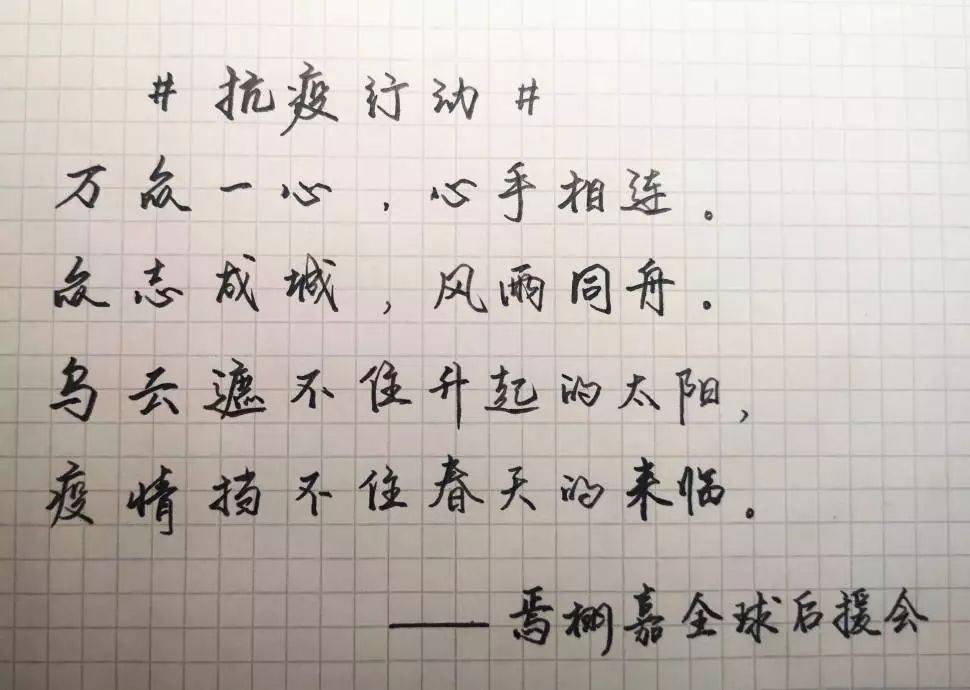 #抗疫行动#
万众一心，心手相连。
众志成城，风雨同舟。
乌云遮不住升起的太阳，
疫情挡不住春天的来临。
——焉栩嘉全球后援会